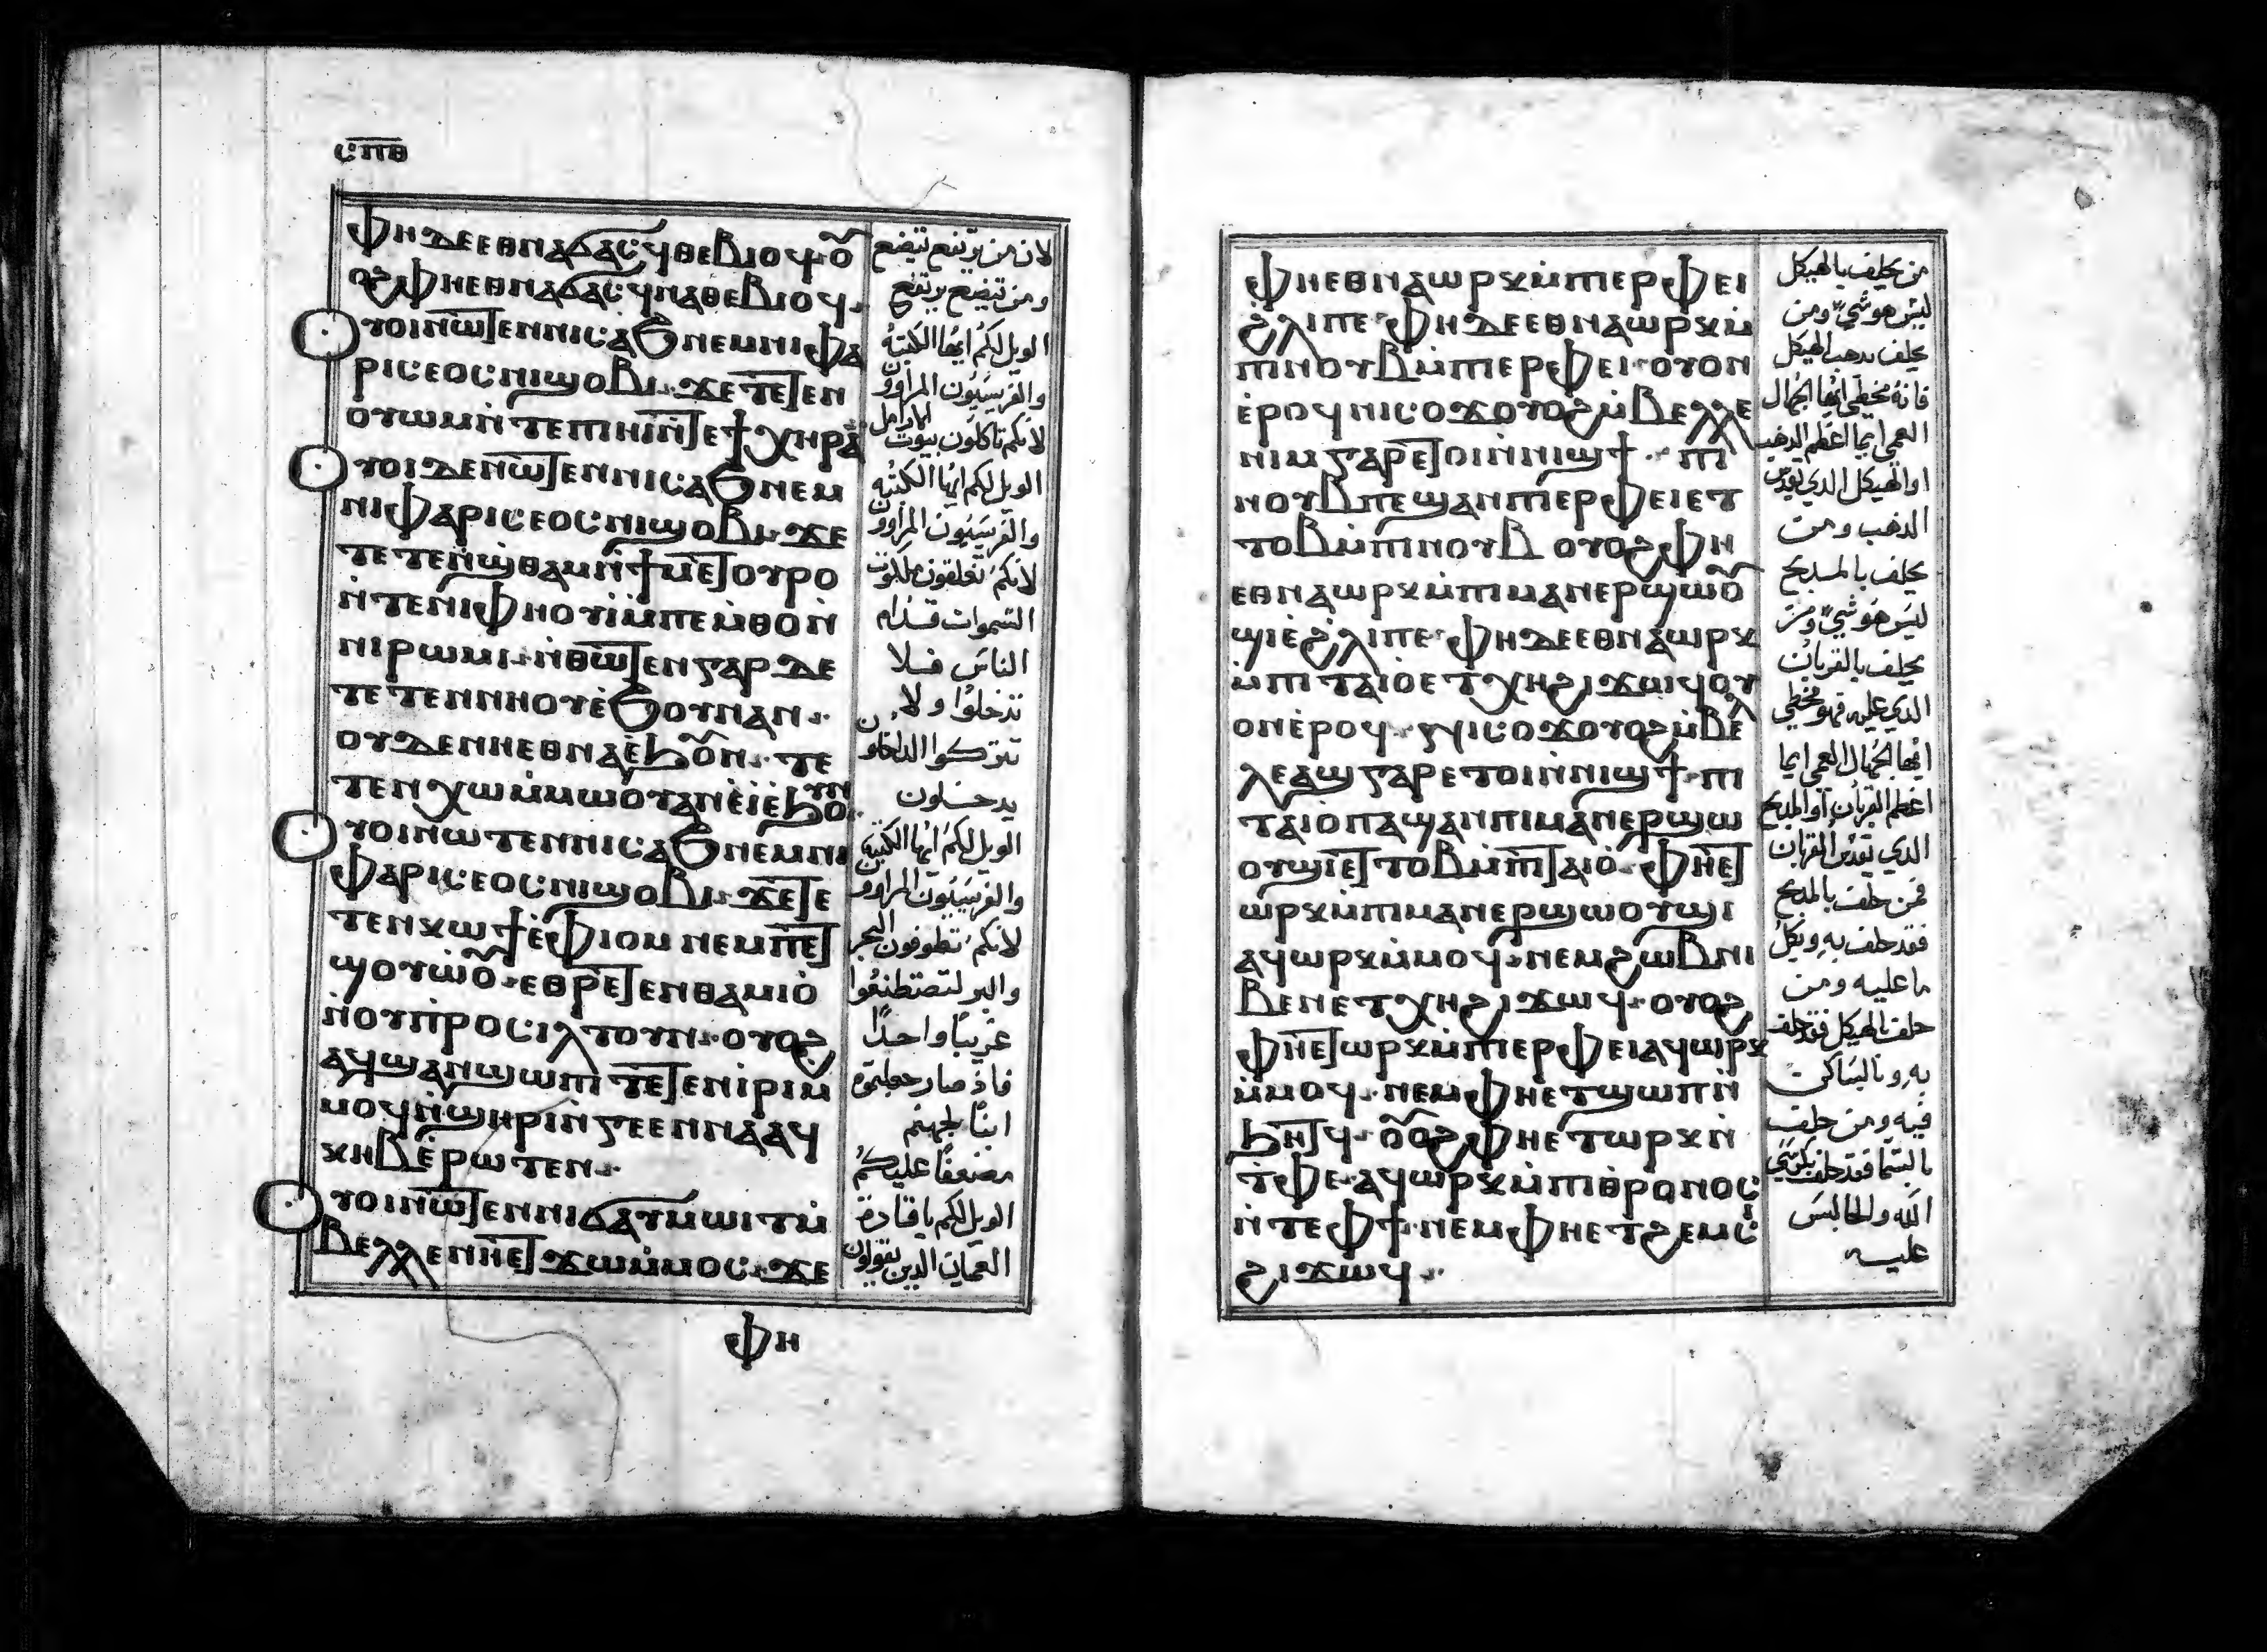 ⲥ̅ⲡ̅ⲑ̅
ⲫⲏⲇⲉⲉⲑⲛⲁϭⲁⲥϥⲑⲉⲃⲓⲟϥⲟ̃
ⲟϩⲫⲏⲉⲑⲛⲁϭⲁⲥϥⲛⲁⲑⲉⲃⲓⲟϥ
ⲟⲩⲟⲓⲛⲱⲧⲉⲛⲛⲓⲥⲁϧⲛⲉⲙⲛⲓⲫⲁ
ⲣⲓⲥⲉⲟⲥⲛⲓϣⲟⲃⲓ ϫⲉⲧⲉⲧⲉⲛ
ⲟⲩⲱⲙⲛ̀ⲧⲉⲡⲏⲓⲛ̀ⲧⲉϯⲭⲏⲣⲁ
ⲟⲩⲟⲓⲇⲉⲛⲱⲧⲉⲛⲛⲓⲥⲁϧⲛⲉⲙ
ⲛⲓⲫⲁⲣⲓⲥⲉⲟⲥⲛⲓϣⲟⲃⲓ ϫⲉ
ⲧⲉⲧⲉⲛϣⲑⲁⲙⲛ̀ϯⲙⲉⲧⲟⲩⲣⲟ
ⲛ̀ⲧⲉⲛⲓⲫⲏⲟⲩⲓ̀ⲙ̀ⲡⲉⲙ̀ⲑⲟⲛ̀
ⲛⲓⲣⲱⲙⲓ ⲛ̀ⲑⲱⲧⲉⲛⲅⲁⲣⲇⲉ
ⲧⲉⲧⲉⲛⲛⲏⲟⲩⲉ̀ϧⲟⲩⲛⲁⲛ
ⲟⲩⲇⲉⲛⲏⲉⲑⲛⲁⲉ̀ϧⲟ̃ⲛ ⲧⲉ
ⲧⲉⲛⲭⲱⲙ̀ⲙⲱⲟⲩⲁⲛⲉ̀ⲓ̀ⲉ̀ϧⲟⲩⲛ
ⲟⲩⲟⲓⲛⲱⲧⲉⲛⲛⲓⲥⲁϧⲛⲉⲙⲛⲓ
ⲫⲁⲣⲓⲥⲉⲟⲥⲛⲓϣⲟⲃⲓ ϫⲉⲧⲉ
ⲧⲉⲛⲕⲱϯⲉ̀ⲫⲓⲟⲙⲛⲉⲙⲡⲉⲧ
ϣⲟⲩⲱ̀ⲟ̃ ⲉⲑⲣⲉⲧⲉⲛⲑⲁⲙⲓⲟ̀
ⲛ̀ⲟⲩⲡ̀ⲣⲟⲥⲓⲗⲧⲟⲩⲛ ⲟⲩⲟϩ
ⲁϥϣⲁⲛϣⲱⲡⲓⲧⲉⲧⲉⲛⲓ̀ⲣⲓⲙ̀
ⲙⲟϥⲛ̀ϣⲏⲣⲓⲛ̀ⲅⲉⲉⲛⲛⲁⲁϥ
ⲕⲏⲃⲉ̀ⲣⲱⲧⲉⲛ
ⲟⲩⲟⲓⲛⲱⲧⲉⲛⲛⲓϭⲁⲩⲙⲱⲓⲧⲙ̀
ⲃⲉⲗⲗⲉⲛⲏⲉⲧϫⲱⲙ̀ⲙⲟⲥ ϫⲉ
ⲫⲏ
لان من يرتفع تيضع
ومن تيضع يرتفع
الويل لكم ايها الكتبة
والفريسيون المراوون
لانكم تاكلون بيوت الارامل
الويل لكم ايها الكتبه
والفريسيون المراوون
لانكم تغلقون ملكوت
السموات قدام
الناس فلا
تدخلوا ولا
تتركوا الداخلون
يدخلون
الويل لكم ايها الكتبة
والفريسيون المراوون
لانكم تطوفون البحر
والبر لتصتطنعوا
غريبًا واحدًا
فاذ صار جعلتموه
ابنًا لجهنم
مضعفًا عليكم
الويل لكم يا قادة
العميان الدين يقولون
ⲫⲏⲉⲑⲛⲁⲱⲣⲕⲙ̀ⲡⲉⲣⲫⲉⲓ
ϩⲗⲓⲡⲉ ⲫⲏⲇⲉⲉⲑⲛⲁⲱⲣⲕⲙ̀
ⲡⲛⲟⲩⲃⲙ̀ⲡⲉⲣⲉⲫⲉⲓ ⲟⲩⲟⲛ
ⲉ̀ⲣⲟϥⲛⲓⲥⲟϫⲟⲩⲟϩⲙ̀ⲃⲉⲗⲗⲉ
ⲛⲓⲙⲅⲁⲣⲉⲧⲟⲓⲛ̀ⲛⲓϣϯ ⲡⲓ
ⲛⲟⲩⲃⲡⲉϣⲁⲛⲡⲓⲉⲣⲫⲉⲓⲉⲧ
ⲧⲟⲃⲙ̀ⲡⲛⲟⲩⲃ ⲟⲩⲟϩⲫⲏ
ⲉⲑⲛⲁⲱⲣⲕⲙ̀ⲡⲓⲙⲁⲛⲉⲣϣⲱⲟ̃
ϣⲓⲉ̀ϩⲗⲓⲡⲉ ⲫⲏⲇⲉⲉⲑⲛⲁⲱⲣⲕ
ⲙ̀ⲡⲓⲧⲁⲓⲟⲉⲧⲭⲏϩⲓϫⲱϥⲟⲩ
ⲟⲛⲉ̀ⲣⲟϥ ⲛⲓⲥⲟϫⲟⲩⲟϩⲙ̀ⲃⲉⲗ
ⲗⲉⲁϣⲅⲁⲣⲉⲧⲟⲓⲛ̀ⲛⲓϣϯ ⲡⲓ
ⲧⲁⲓⲟⲡⲁϣⲁⲛⲡⲓⲙⲁⲛⲉⲣϣⲱ
ⲟⲩϣⲓⲉⲧⲧⲟⲃⲙ̀ⲡⲓⲧⲁⲓⲟ̀ ⲫⲏⲉⲧ
ⲱⲣⲕⲙ̀ⲡⲓⲙⲁⲛⲉⲣϣⲱⲟⲩϣⲓ
ⲁϥⲱⲣⲕⲙ̀ⲙⲟϥ ⲛⲉⲙϩⲱⲃⲛⲓ
ⲃⲉⲛⲉⲧⲭⲏϩⲓϫⲱϥ ⲟⲩⲟϩ
ⲫⲏⲉⲧⲱⲣⲕⲙ̀ⲡⲉⲣⲫⲉⲓⲁϥⲱⲣⲕ
ⲙ̀ⲙⲟϥ ⲛⲉⲙⲫⲏⲉⲧϣⲱⲡⲛ̀
ϧⲏⲧϥ ⲟ̃ⲟϩⲫⲏⲉⲧⲱⲣⲕⲛ̀
ⲧ̀ⲫⲉ ⲁϥⲱⲣⲕⲙ̀ⲡⲓⲑⲣⲟⲛⲟⲥ
ⲛ̀ⲧⲉⲫϯ ⲛⲉⲙⲫⲏⲉⲧϩⲉⲙⲥ
ϩⲓϫⲱϥ
من يحلف بالهيكل
ليس هو شي ومن
يحلف بدهب الهيكل
فانه مخطي ايها الجهال
العمي ايما اعظم الدهب
او الهيكل الدي يقدس
الدهب ومن
يحلف بالمدبح
ليس هو شي ومن
يحلف بالقربان
الدي عليه فهو مخطي
ايها الجهال العمي ايما
اعظم القربان او المدبح
الدي يقدس القربان
فمن حلف بالمدبح
فقد حلف به وبكل
ما عليه ومن
حلف بالهيكل فقد حلف
به وبالساكن
فيه ومن حلف
بالسما فقد حلف بكرسي
الله والجالس
عليه